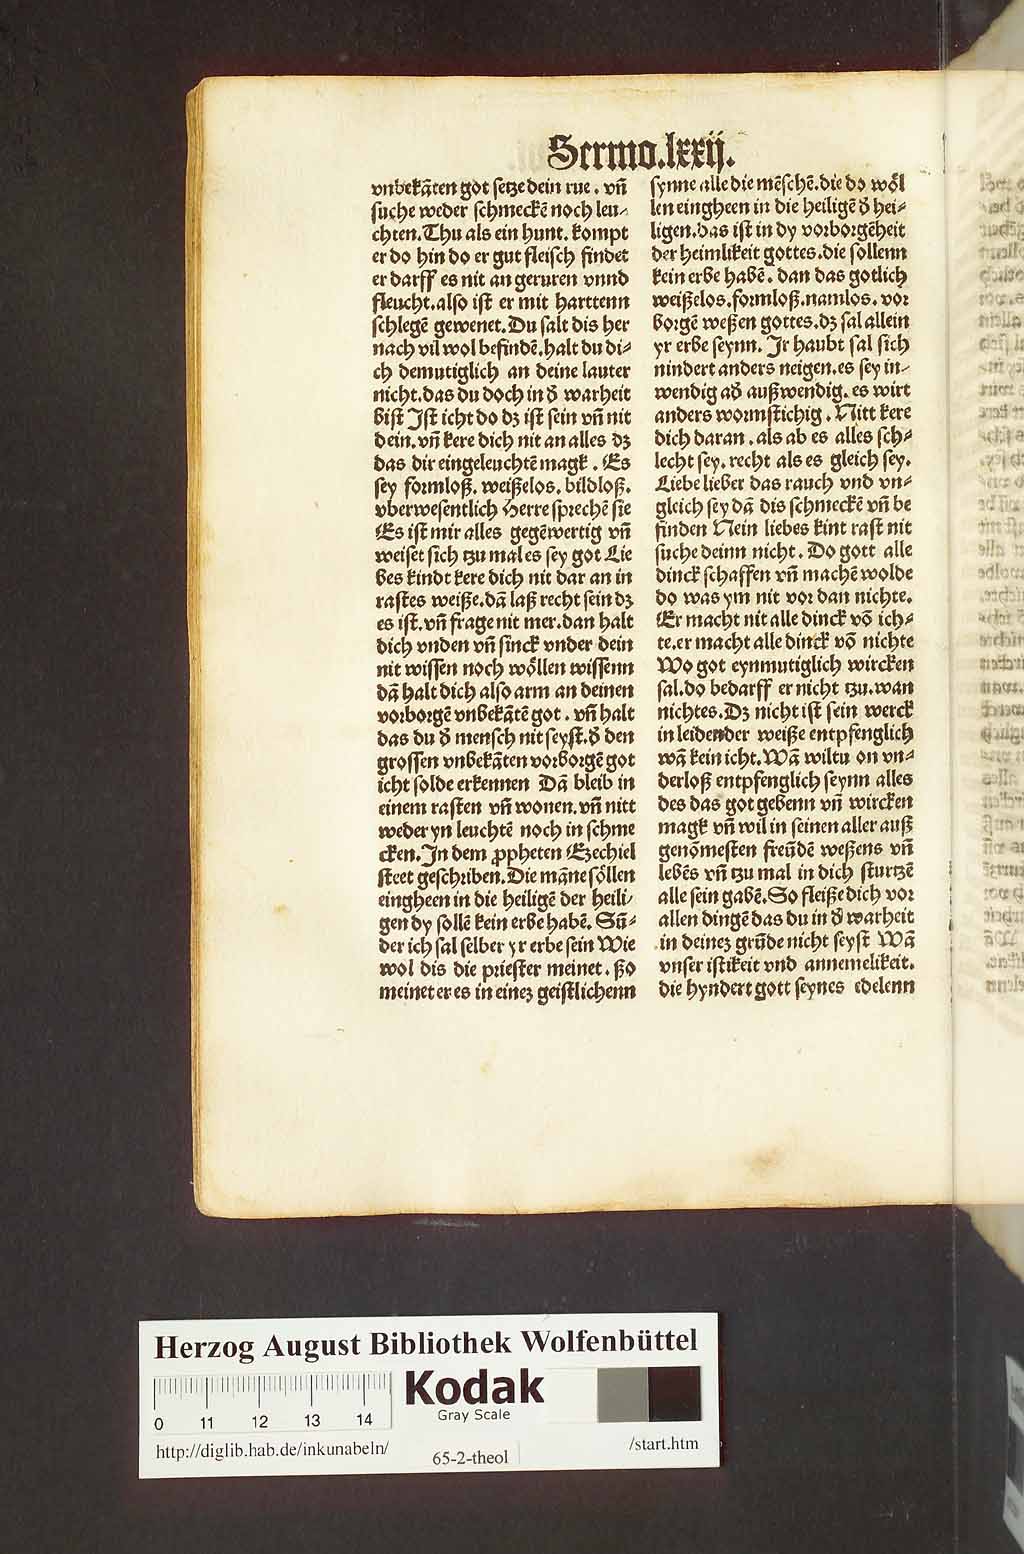 Sermo.lxxij.
vnbekāten got setze dein rue . vn̄
suche weder schmeckē noch leu-
chten. Thu als ein hunt. kompt
er do hin do er gut fleisch findet
er darff es nit an geruren vnnd
fleucht. also ist er mit harttenn
schlegē gewenet. Du salt dis her
nach vil wol befindē. halt du di-
ch demutiglich an deine lauter
nicht. das du doch in ð warheit
bist Ist icht do dꝫ ist sein vn̄ nit
dein. vn̄ kere dich nit an alles dꝫ
das dir eingeleuchtē magk . Es
sey formloß. weißelos. bildloß.
vberwesentlich Herre sprechē sie
Es ist mir alles gegēwertig vn̄
weiset sich tzu mal es sey got Lie
bes kindt kere dich nit dar an in
rastes weiße. dā laß recht sein dꝫ
es ist. vn̄ frage nit mer. dan halt
dich vnden vn̄ sinck vnder dein
nit wissen noch wöllen wissenn
dā halt dich also arm an deinen
vorborgē vnbekātē got . vn̄ halt
das du ð mensch nit seyst. ð den
grossen vnbekāten vorborgē got
icht solde erkennen Dā bleib in
einem rasten vn̄ wonen. vn̄ nitt
weder yn leuchtē noch in schme
cken. In dem ꝓpheten Ezechiel
steet geschriben. Die māne söllen
eingheen in die heiligē der heili-
gen dy sollē kein erbe habē. Sū-
der ich sal selber yr erbe sein Wie
wol dis die priester meinet . ßo
meinet er es in eineꝫ geistlichenn
synne alle die mēschē. die do wöl
len eingheen in die heiligē ð hei-
ligen. das ist in dy vorborgēheit
der heimlikeit gottes. die sollenn
kein erbe habē . dan das gotlich
weißelos. formloß. namlos. vor
borgē weßen gottes. dꝫ sal allein
yr erbe seynn. Ir haubt sal sich
nindert anders neigen. es sey in-
wendig að außwendig. es wirt
anders wormstichig . Nitt kere
dich daran . als ab es alles sch-
lecht sey. recht als es gleich sey.
Liebe lieber das rauch vnd vn-
gleich sey dā dis schmeckē vn̄ be
finden Nein liebes kint rast nit
suche deinn nicht . Do gott alle
dinck schaffen vn̄ machē wolde
do was ym nit vor dan nichte.
Er macht nit alle dinck vō ich-
te. er macht alle dinck vō nichte
Wo got eynmutiglich wircken
sal. do bedarff er nicht tzu. wan
nichtes. Dꝫ nicht ist sein werck
in leidender weiße entpfenglich
wā kein icht. Wā wiltu on vn-
derloß entpfenglich seynn alles
des das got gebenn vn̄ wircken
magk vn̄ wil in seinen aller auß
genōmesten freūdē weßens vn̄
lebēs vn̄ tzu mal in dich sturtzē
alle sein gabē. So fleiße dich vor
allen dingē das du in ð warheit
in deineꝫ grūde nicht seyst Wā
vnser istikeit vnd annemelikeit.
die hyndert gott seynes edelenn
Herzog August Bibliothek Wolfenbüttel
0 11 12 13 14
Kodak
Gray Scale
http://diglib.hab.de/inkunabeln/
65-2-theol
/start.htm